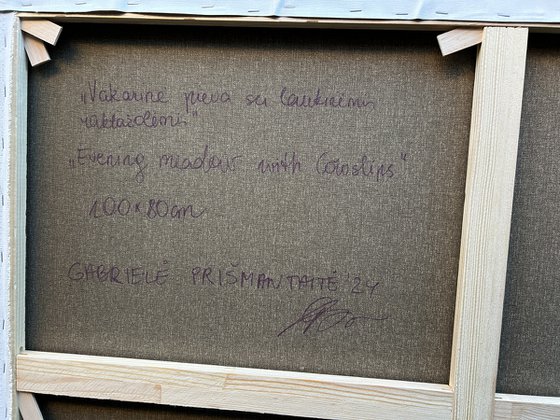 „Vakarinė pieva su laukinėmis
raktažolėmis"
„Evening meadow with Cowslips"
100x80cm
GABRIELĖ PRIŠMANTAITĖ '24